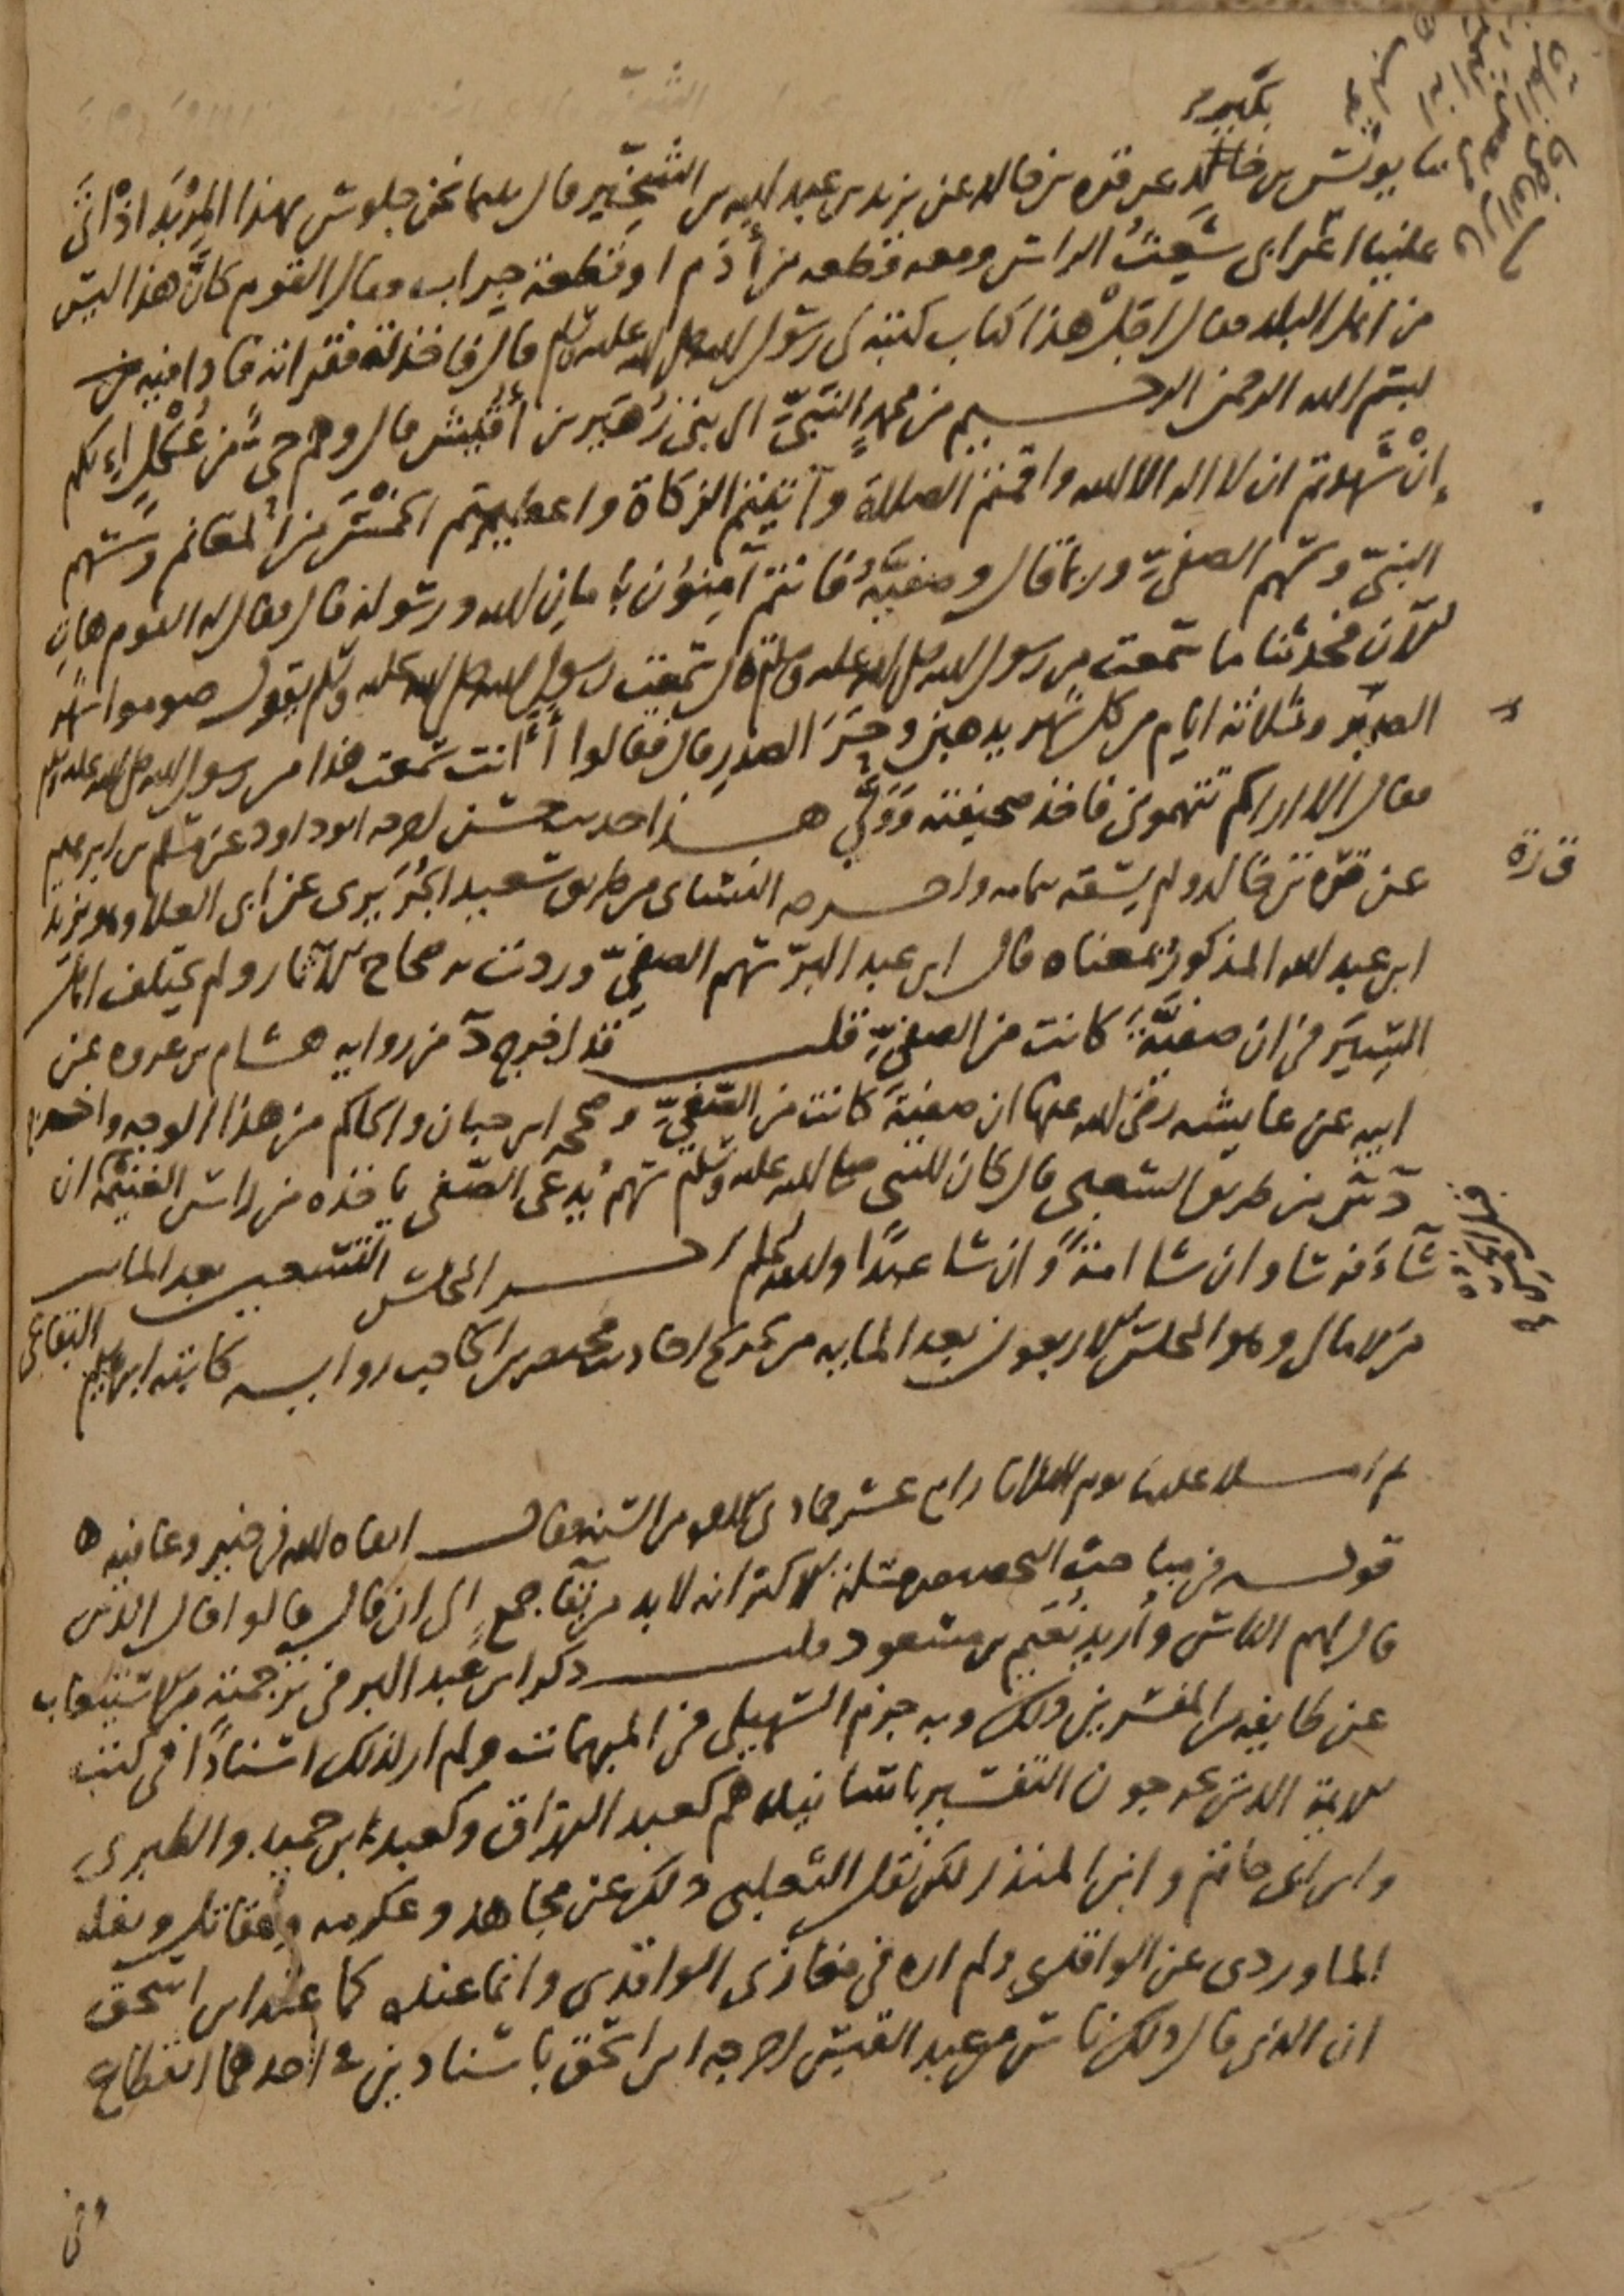 بكير
ثنا يونس بن خالد عن قرة بن خالد عن يزيد بن عبد الله بن الشخير قال بينما نحن جلوس بهذا المربد اذ اتى
علينا اعرابي شعث الراس ومعه قطعة من أدم او قطعة جراب فقال القوم كأن هذا ليس
من اهل البلد فقال اجل هذا كتاب كتبه لي رسول الله صلى الله عليه وسلم قال فاخذته فقراته فاذا فيه
بسم الله الرحمن الرحيم من محمد النبي الى بني زهير بن أقيش قال وهم حي من عكل إنكم
إن شهدتم ان لا اله الا الله واقمتم الصلاة وآتيتم الزكاة واعطيتم الخمس من المغانم وسهم
النبي وسهم الصفي وربما قال وصفيه فانتم آمنون بامان الله ورسوله قال فقال له القوم هات
الآن فحدثنا ما سمعت من رسول الله صلى الله عليه وسلم قال سمعت رسول الله صلى الله عليه وسلم يقول صوموا شهر
الصبر وثلاثة ايام من كل شهر يذهبن وحر الصدر قال فقالوا أأنت سمعت هذا من رسول الله صلى الله عليه وسلم
فقال الا اراكم تتهموني فاخذ صحيفته وولى هذا حديث حسن اخرجه ابو داود عن مسلم بن ابرهيم
قرة
عن قرة بن خالد ولم يسقه بتمامه واخرجه النسائي من طريق سعيد الجريري عن ابي العلاء وهو يزيد
ابن عبد الله المذكور بمعناه قال ابن عبد البر سهم الصفي وردت به صحاح الآثار ولم يختلف اهل
السير في ان صفية كانت من الصفي قلت قد اخرج د من رواية هشام بن عروة عن
ابيه عن عايشه رضي الله عنها ان صفية كانت من الصفي وصححه ابن حبان والحاكم من هذا الوجه واخرج
د س من طريق الشعبي قال كان للنبي صلى الله عليه وسلم سهم يدعى الصفي ياخذه من راس الغنيمة ان
شاء فرسا وان شا امة وان شا عبدا والله اعلم اخر المجلس التسعين بعد المايه
من الامالي وهو المجلس الاربعون بعد المايه من تخريج احاديث مختصر ابن الحاجب رواية كاتبه ابرهيم البقاعي
ثم املا علينا يوم الثلاثا رابع عشر جمادى من السنه فقال ابقاه الله في خير وعافيه ه
قوله في مباحث التخصيص مسلة الاكثر انه لا بد من بقا جمع الى ان قال قالوا قال الذين
قال لهم الناس وأريد نعيم بن مسعود قلت ذكر ابن عبد البر في ترجمته من الاستيعاب
عن طايفه من المفسرين ذلك وبه جزم السهيلي في المبهمات ولم ار لذلك اسنادا في كتب
الايمة الذين يخرجون التفسير باسانيدهم كعبد الرزاق وكعبد بن حميد والطبري
وابن ابي حاتم وابن المنذر لكن نقل الثعلبي ذلك عن مجاهد وعكرمه ومقاتل ونقله
الماوردي عن الواقدي ولم اره في مغازي الواقدي وانما عنده كما عند ابن اسحق
ان الذي قال ذلك ناس من عبد القيس اخرجه ابن اسحق باسنادين في احدهما انقطاع
وفي